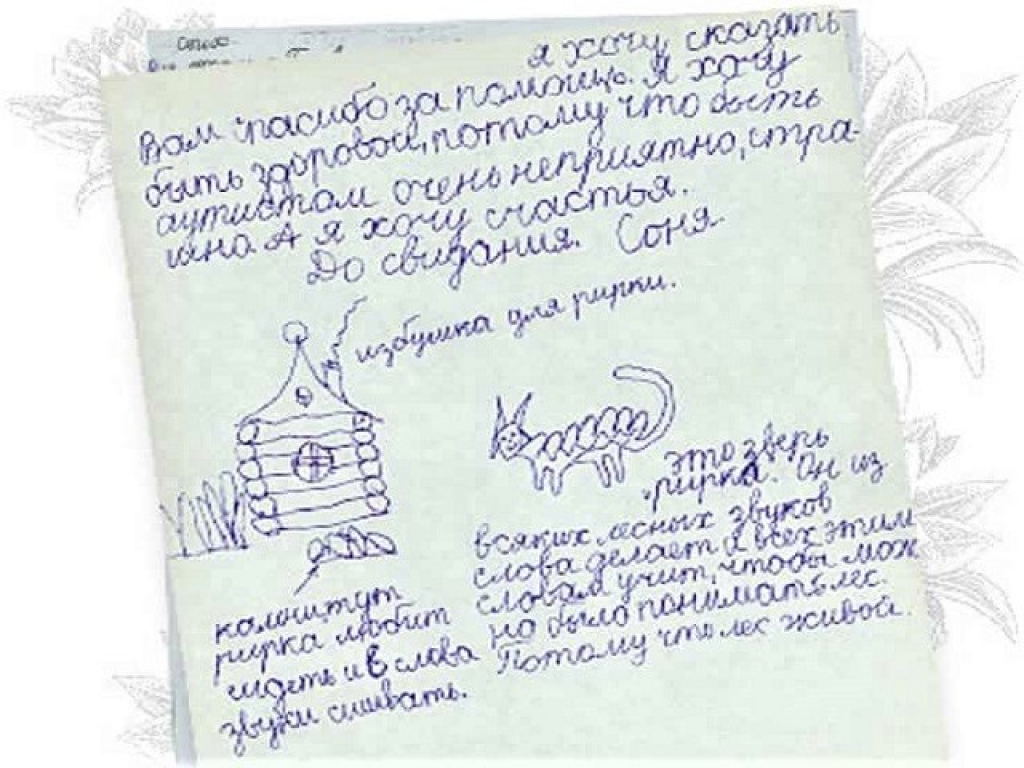 я хочу сказать
Вам спасибо за помощь. Я хочу
быть здоровой, потому что быть
аутистом очень неприятно, стра-
шно. А я хочу счастья.
До свидания. Соня.
избушка для рирки.
это зверь
рирка. Он из
всяких лесных звуков
слова делает и всех этим
словам учит, чтобы мож
но было понимать лес.
Потому что лес живой.
камни, тут
рирка любит
сидеть и в слова
звуки сшивать.